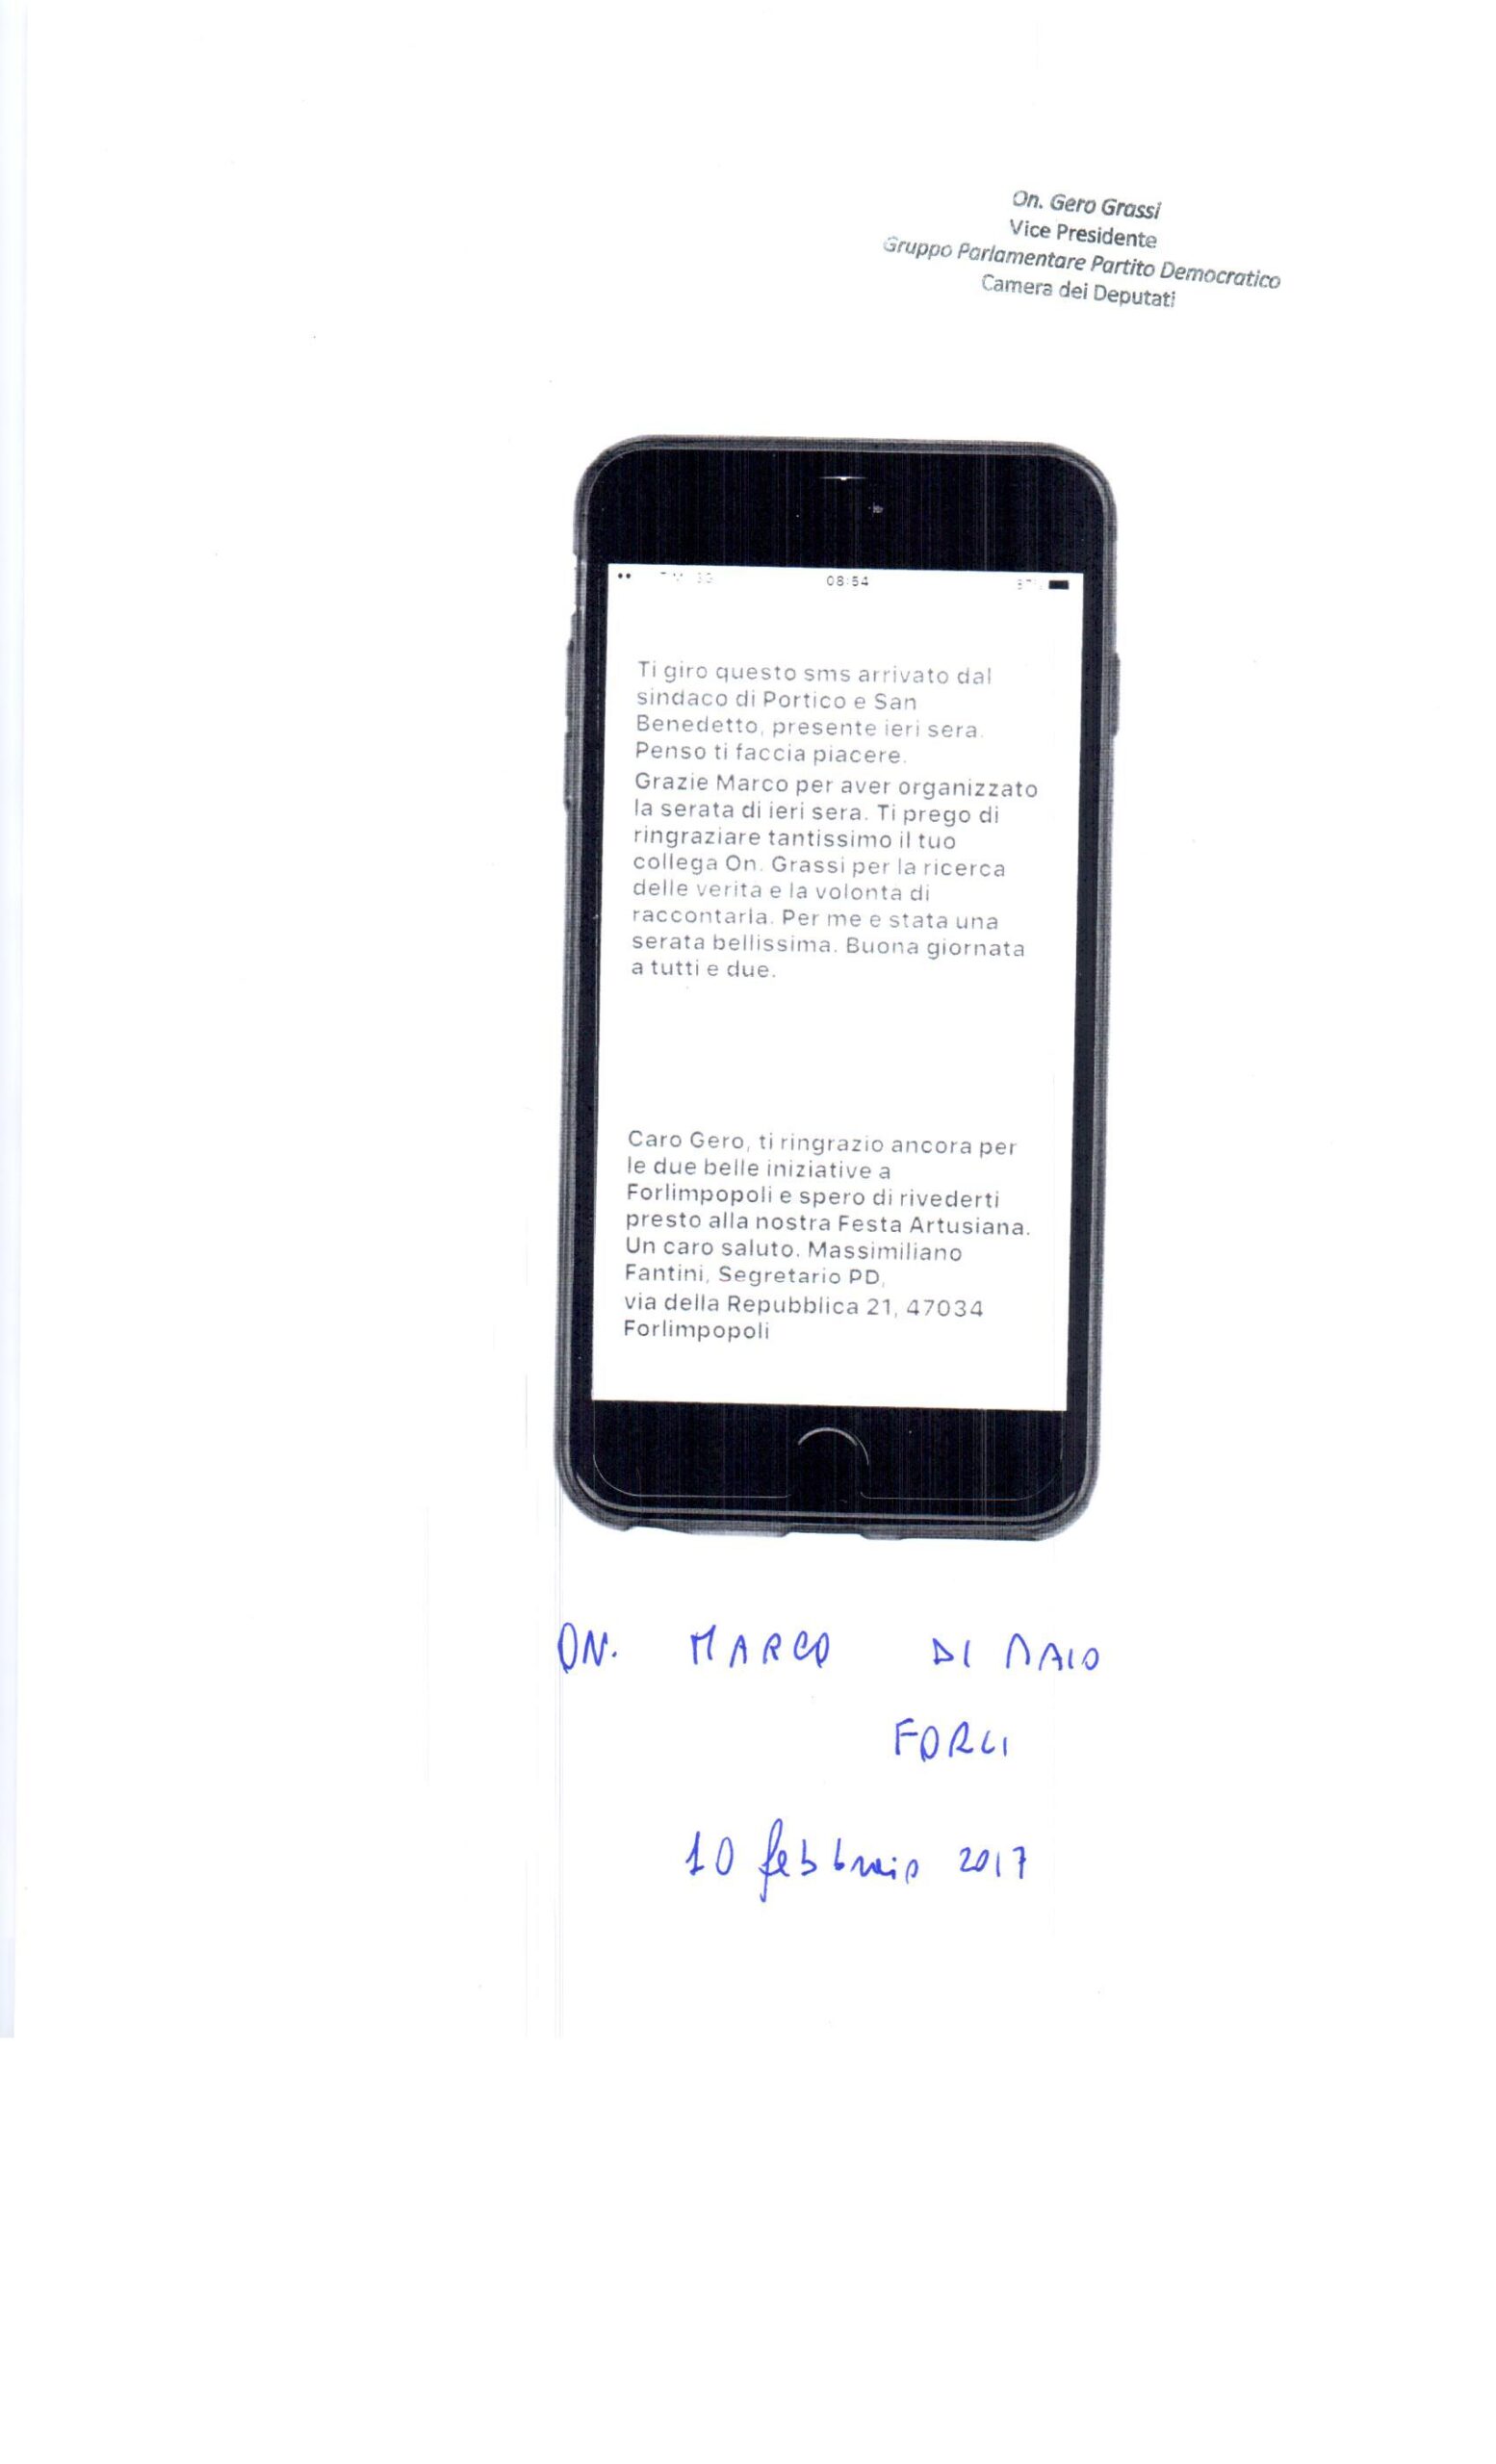 On. Gero Grassi
Vice Presidente
Gruppo Parlamentare Partito Democratico
Camera dei Deputati
08:54
Ti giro questo sms arrivato dal
sindaco di Portico e San
Benedetto, presente ieri sera.
Penso ti faccia piacere.
Grazie Marco per aver organizzato
la serata di ieri sera. Ti prego di
ringraziare tantissimo il tuo
collega On. Grassi per la ricerca
delle verita e la volonta di
raccontarla. Per me e stata una
serata bellissima. Buona giornata
a tutti e due.
Caro Gero, ti ringrazio ancora per
le due belle iniziative a
Forlimpopoli e spero di rivederti
presto alla nostra Festa Artusiana.
Un caro saluto. Massimiliano
Fantini, Segretario PD,
via della Repubblica 21, 47034
Forlimpopoli
ON. MARCO DI MAIO
FORLI
10 febbraio 2017